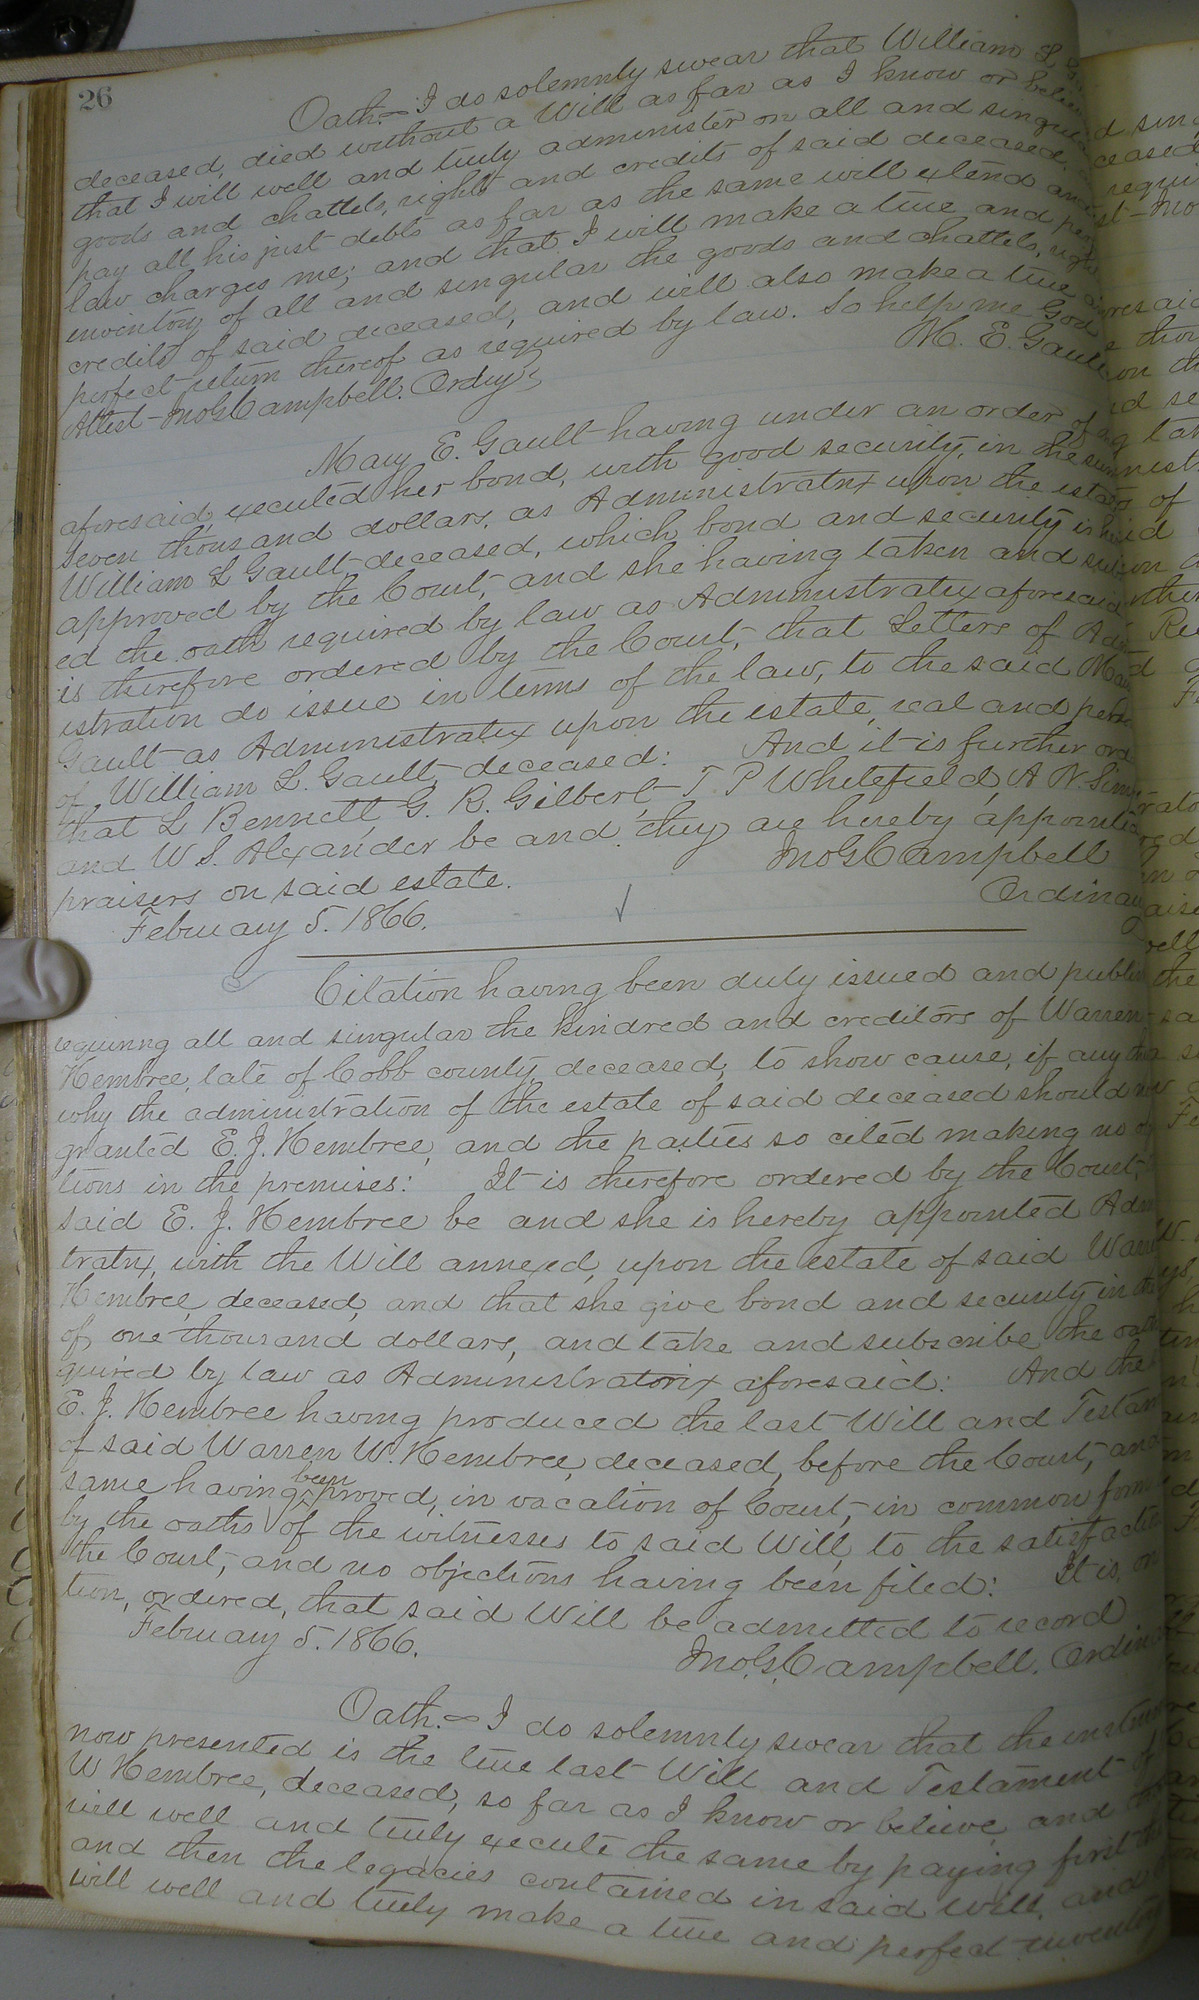 26
Oath. I do solemnly swear that William L
deceased, died without a Will as far as I know or believe
that I will well and truly administer on all and singular
goods and chattels, rights and credits of said deceased,
pay all his just debts as far as the same will extend and
law charges me; and that I will make a true and per
inventory of all and singular the goods and chattels, rights
credits of said deceased, and will also make a true
perfect return thereof as required by law. So help me God
M. E. Gault
Attest - Jno G Campbell. Ordny
Mary E. Gault having under an order of
aforesaid, executed her bond, with good security, in the sum
seven thousand dollars, as Administratrix upon the estate
William L Gault, deceased, which bond and security is
approved by the Court, and she having taken and sub
ed the oath required by law as Administratrix aforesaid
is therefore ordered by the Court, that Letters of Adm
istration do issue in terms of the law, to the said Mary
Gault as Administratrix upon the estate, real and perso
of William L. Gault, deceased: And it is further ord
that L Bennett, G. R. Gilbert, T P Whitefield, A N. Sim
and W S. Alexander be and they are hereby appointed
praisers on said estate. Jno G Campbell
February 5. 1866. Ordinary
Citation having been duly issued and publis
requiring all and singular the kindred and creditors of Warren
Hembree, late of Cobb county, deceased, to show cause, if any they
why the administration of the estate of said deceased should
granted E. J. Hembree, and the parties so cited making no
tions in the premises: It is therefore ordered by the Court,
said E. J. Hembree be and she is hereby appointed Adm
tratrix, with the Will annexed, upon the estate of said Warren
Hembree, deceased, and that she give bond and security in the
of one thousand dollars, and take and subscribe the oath
quired by law as Administratorix aforesaid: And the
E. J. Hembree having produced the last Will and Testam
of said Warren W. Hembree, deceased, before the Court, and
same having been proved, in vacation of Court, in common form
by the oaths of the witnesses to said Will, to the satisfaction
the Court, and no objections having been filed: It is, on
tion, ordered, that said Will be admitted to record
February 5. 1866. Jno G. Campbell. Ordin
Oath. I do solemnly swear that the instrum
now presented is the true last Will and Testament of
W Hembree, deceased, so far as I know or believe, and
will well and truly execute the same by paying first the
and then the legacies contained in said will, and
will well and truly make a true and perfect inventory